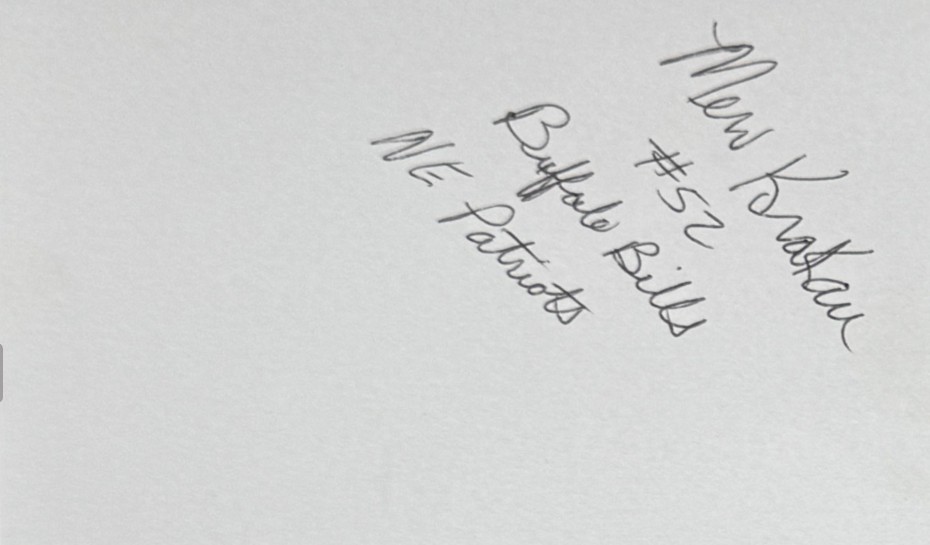 Merv Krakau
#52
Buffalo Bills
NE Patriots